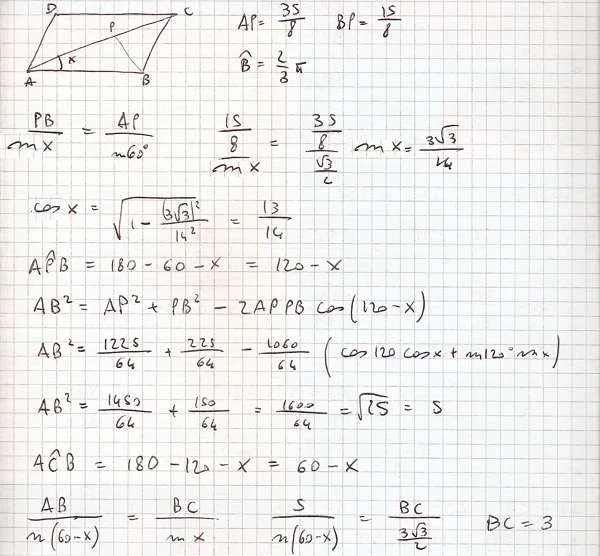 D C
P
A x B
AP = 35/8 BP = 15/8
B̂ = 2/3 π
PB/m x = AP/m60° 15/8/m x = 35/8/√3/2 m x = 3√3/14
cos x = √1 - |3√3|²/14² = 13/14
AP̂B = 180 - 60 - x = 120 - x
AB² = AP² + PB² - 2AP PB cos(120 - x)
AB² = 1225/64 + 225/64 - 1060/64 (cos120 cosx + m120° m x)
AB² = 1450/64 + 150/64 = 1600/64 = √25 = 5
AĈB = 180 - 120 - x = 60 - x
AB/n(60-x) = BC/m x 5/n(60-x) = BC/3√3/2 BC = 3